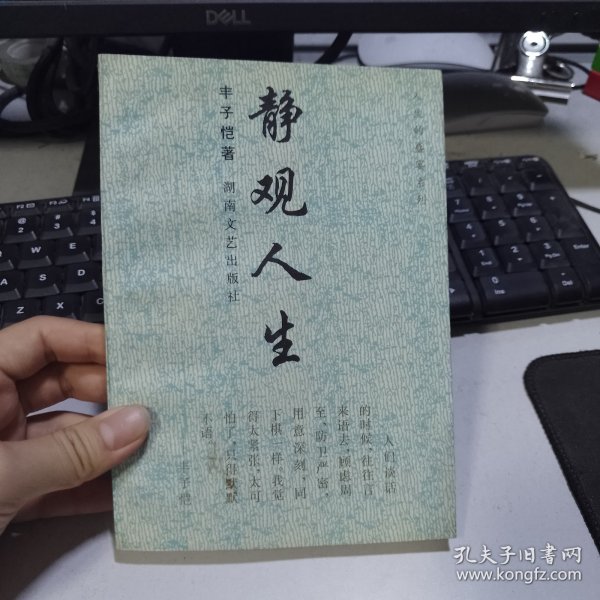 DELL
静观人生
丰子恺著
湖南文艺出版社
人们谈话
的时候，往往言
来语去，顾虑周
至，防卫严密，
用意深刻，同
下棋一样。我觉
得太紧张，太可
怕了，只得默默
不语。
丰子恺
孔夫子旧书网
www.kongfz.com